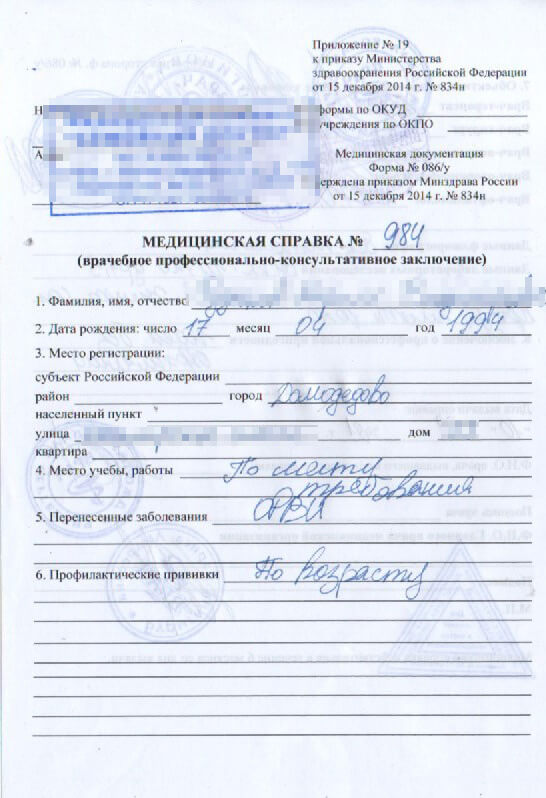 Приложение № 19
к приказу Министерства
здравоохранения Российской Федерации
от 15 декабря 2014 г. № 834н
Н
формы по ОКУД
учреждения по ОКПО
А
Медицинская документация
Форма № 086/у
ерждена приказом Минздрава России
от 15 декабря 2014 г. № 834н
МЕДИЦИНСКАЯ СПРАВКА № 984
(врачебное профессионально-консультативное заключение)
1. Фамилия, имя, отчество
2. Дата рождения: число 17 месяц 04 год 1994
3. Место регистрации:
субъект Российской Федерации
район город Домодедово
населенный пункт
улица дом
квартира
4. Место учебы, работы По месту
требования
5. Перенесенные заболевания ОРВИ
6. Профилактические прививки По возрасту